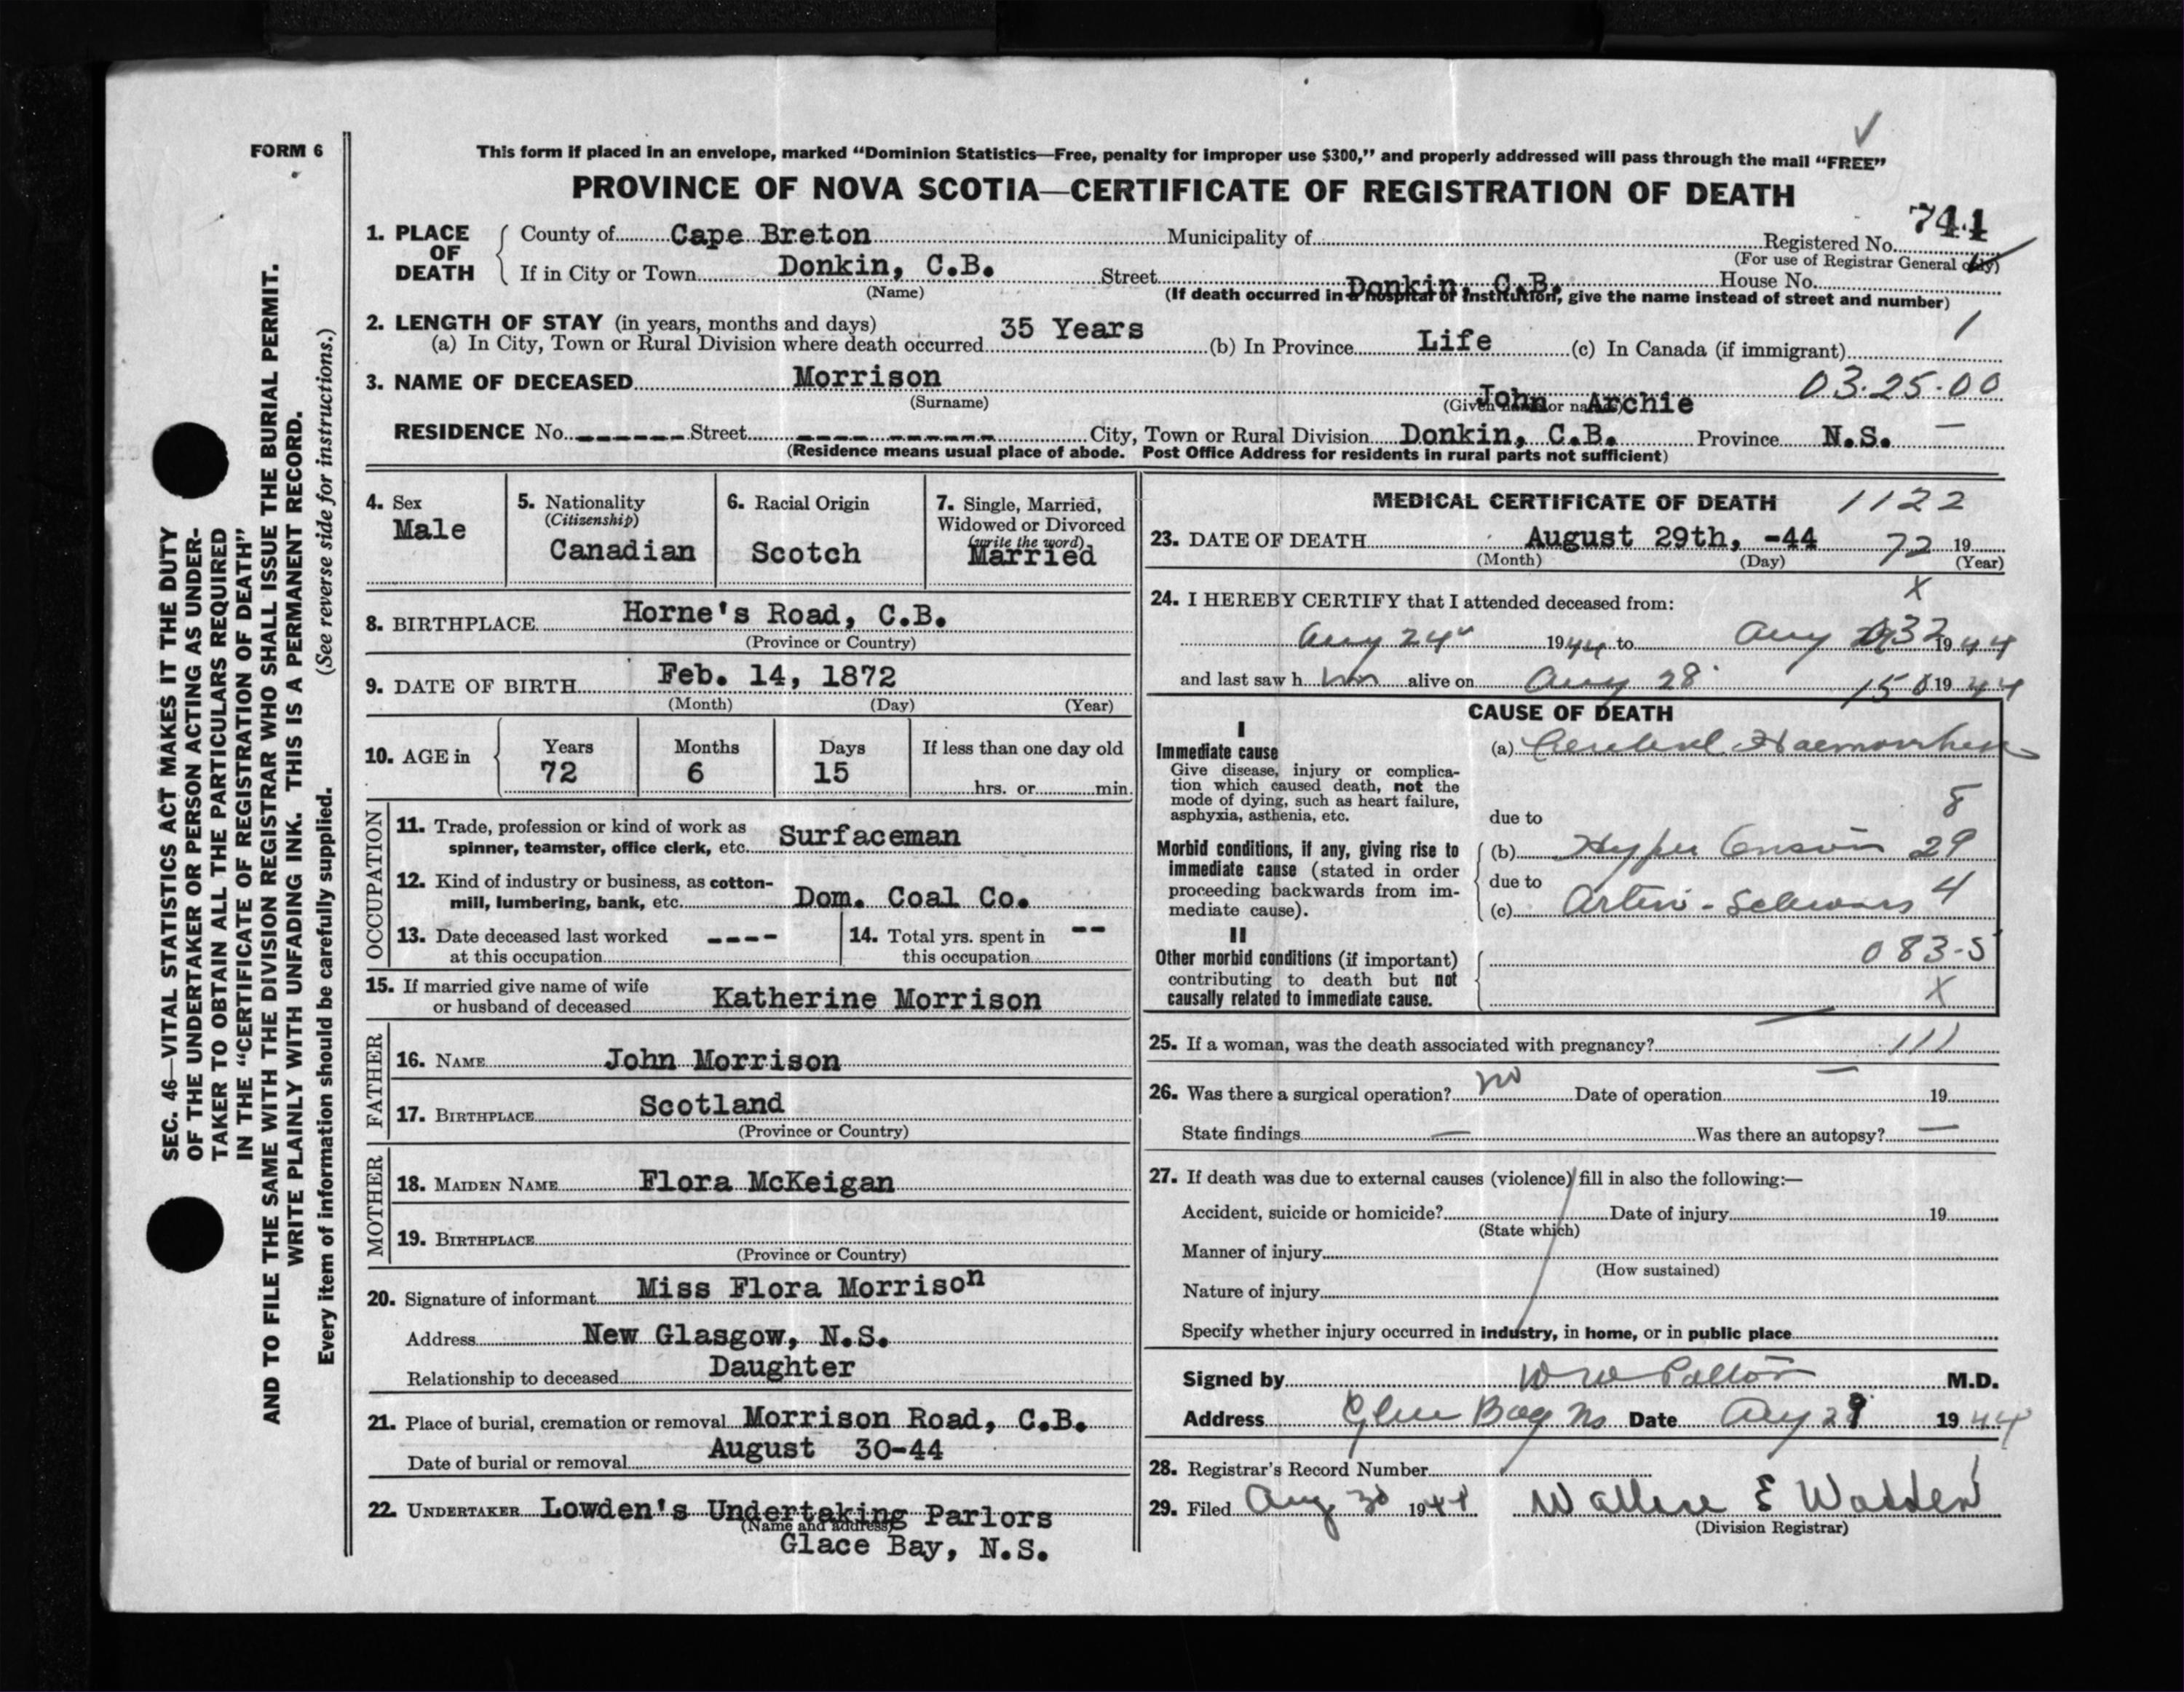 FORM 6
This form if placed in an envelope, marked “Dominion Statistics—Free, penalty for improper use $300,” and properly addressed will pass through the mail “FREE”
PROVINCE OF NOVA SCOTIA—CERTIFICATE OF REGISTRATION OF DEATH
744
1. PLACE OF DEATH
County of Cape Breton Municipality of Registered No.
(For use of Registrar General only)
If in City or Town Donkin, C.B. Street Donkin, C.B. House No.
(Name) (If death occurred in a hospital or institution, give the name instead of street and number)
2. LENGTH OF STAY (in years, months and days)
(a) In City, Town or Rural Division where death occurred 35 Years (b) In Province Life (c) In Canada (if immigrant) 1
3. NAME OF DECEASED Morrison John Archie 03-25-00
(Surname) (Given name or names)
RESIDENCE No. ------ Street ---- ------ City, Town or Rural Division Donkin, C.B. Province N.S. —
(Residence means usual place of abode. Post Office Address for residents in rural parts not sufficient)
4. Sex
Male
5. Nationality
(Citizenship)
Canadian
6. Racial Origin
Scotch
7. Single, Married,
Widowed or Divorced
(write the word)
Married
8. BIRTHPLACE Horne's Road, C.B.
(Province or Country)
9. DATE OF BIRTH Feb. 14, 1872
(Month) (Day) (Year)
10. AGE in
Years Months Days If less than one day old
72 6 15
hrs. or min.
OCCUPATION
11. Trade, profession or kind of work as
spinner, teamster, office clerk, etc. Surfaceman
12. Kind of industry or business, as cotton-
mill, lumbering, bank, etc. Dom. Coal Co.
13. Date deceased last worked
at this occupation ----
14. Total yrs. spent in
this occupation --
15. If married give name of wife
or husband of deceased Katherine Morrison
FATHER
16. NAME John Morrison
17. BIRTHPLACE Scotland
(Province or Country)
MOTHER
18. MAIDEN NAME Flora McKeigan
19. BIRTHPLACE
(Province or Country)
20. Signature of informant Miss Flora Morrison
Address New Glasgow, N.S.
Relationship to deceased Daughter
21. Place of burial, cremation or removal Morrison Road, C.B.
Date of burial or removal August 30-44
22. UNDERTAKER Lowden's Undertaking Parlors
(Name and address)
Glace Bay, N.S.
MEDICAL CERTIFICATE OF DEATH 1122
23. DATE OF DEATH August 29th, -44 72 19
(Month) (Day) (Year)
X
24. I HEREBY CERTIFY that I attended deceased from:
Aug 24" 1944 to Aug 1944
and last saw h im alive on Aug 28 150 1944
CAUSE OF DEATH
I
Immediate cause
Give disease, injury or complica-
tion which caused death, not the
mode of dying, such as heart failure,
asphyxia, asthenia, etc.
(a) Cerebral Haemorrhage
8
due to
Morbid conditions, if any, giving rise to
immediate cause (stated in order
proceeding backwards from im-
mediate cause).
(b) Hyper tension 29
due to
(c) Arterio-Sclerosis 4
II
Other morbid conditions (if important)
contributing to death but not
causally related to immediate cause.
083-5
X
25. If a woman, was the death associated with pregnancy? 111
26. Was there a surgical operation? no Date of operation — 19
State findings — Was there an autopsy? —
27. If death was due to external causes (violence) fill in also the following:—
Accident, suicide or homicide? Date of injury 19
(State which)
Manner of injury
(How sustained)
Nature of injury
Specify whether injury occurred in industry, in home, or in public place
Signed by W W Patton M.D.
Address Glace Bay NS Date Aug 29 1944
28. Registrar's Record Number
29. Filed Aug 30 1944 Wallace E Wadden
(Division Registrar)
SEC. 46—VITAL STATISTICS ACT MAKES IT THE DUTY
OF THE UNDERTAKER OR PERSON ACTING AS UNDER-
TAKER TO OBTAIN ALL THE PARTICULARS REQUIRED
IN THE “CERTIFICATE OF REGISTRATION OF DEATH”
AND TO FILE THE SAME WITH THE DIVISION REGISTRAR WHO SHALL ISSUE THE BURIAL PERMIT.
WRITE PLAINLY WITH UNFADING INK. THIS IS A PERMANENT RECORD.
Every item of information should be carefully supplied. (See reverse side for instructions.)